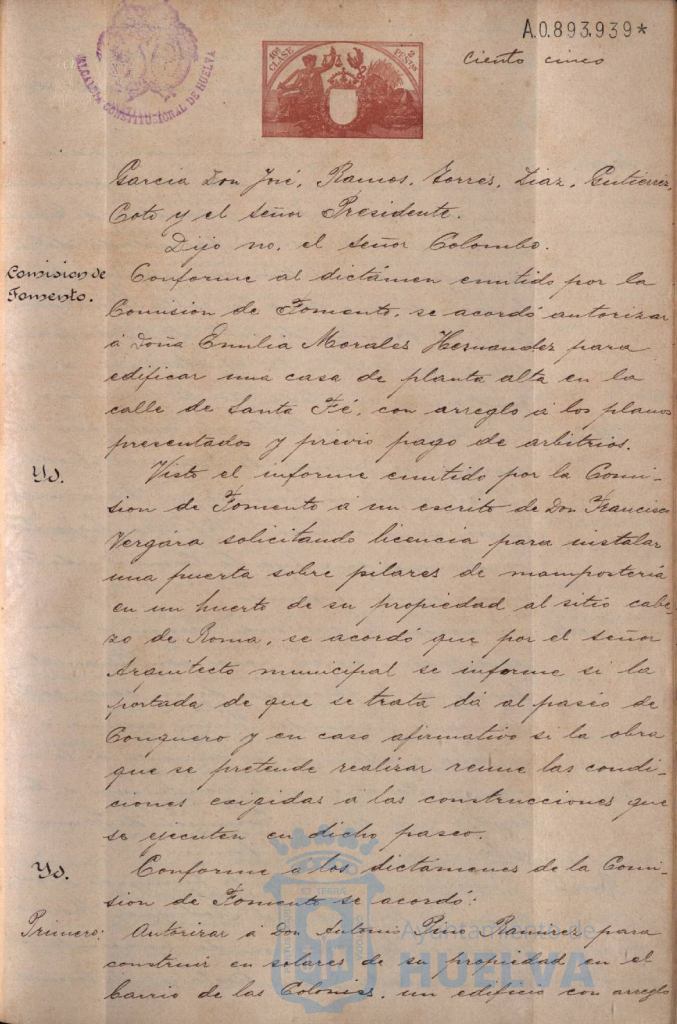 A.0.893.939*
ALCALDIA CONSTITUCIONAL DE HUELVA
10ª CLASE
2 PESETAS
Ciento cinco
Garcia Don José, Ramos, Torres, Diaz, Gutierrez,
Coto y el señor Presidente.
Dijo no, el señor Colombo.
Comision de
Fomento.
Conforme al dictámen emitido por la
Comision de Fomento, se acordó autorizar
á Doña Emilia Morales Hernandez para
edificar una casa de planta alta en la
calle de Santa Fé, con arreglo á los planos
presentados y prévio pago de arbitrios.
Yd.
Visto el informe emitido por la Comi-
sion de Fomento á un escrito de Don Francisco
Vergára solicitando licencia para instalar
una puerta sobre pilares de mamposteria
en un huerto de su propiedad al sitio cabe-
zo de Roma, se acordó que por el señor
Arquitecto municipal se informe si la
portada de que se trata dá al paseo de
Conquero y en caso afirmativo si la obra
que se pretende realizar reune las condi-
ciones exigidas á las construcciones que
se ejecuten en dicho paseo.
Yd.
Conforme a los dictámenes de la Comi-
sion de Fomento se acordó:
Primero: Autorizar á Don Antonio Pino Ramirez para
construir en solares de su propiedad en el
barrio de las Colonias, un edificio con arreglo
Ayuntamiento de
HUELVA